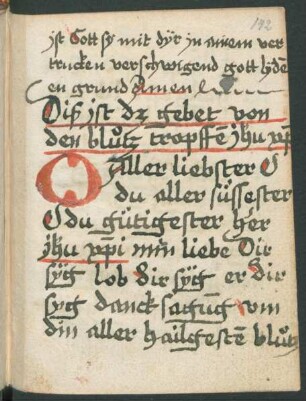 142
ist Gott sy mit dyr in ainem ver
trucken verschwigend gott hd̄e
en grund Amen
Diß ist dz gebet von
den blůtz tropffē ihū xp̄i
O aller liebster O
du aller süssester
O du gütigester her
ihū xp̄i min liebe Dir
syg lob dir syg er dir
syg danck sagūg vm
din aller hailgestē blůtz